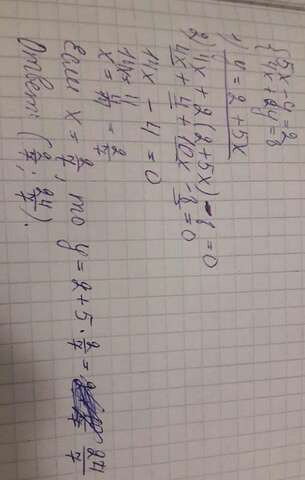 {5x - y = 2
4x + 2y = 8
1) y = 2 + 5x
2) 4x + 2(2 + 5x) - 8 = 0
4x + 4 + 10x - 8 = 0
14x - 4 = 0
14x = 4
x = 4/14 = 2/7
Если x = 2/7, то y = 2 + 5 · 2/7 = 24/7
Ответ: (2/7; 24/7).